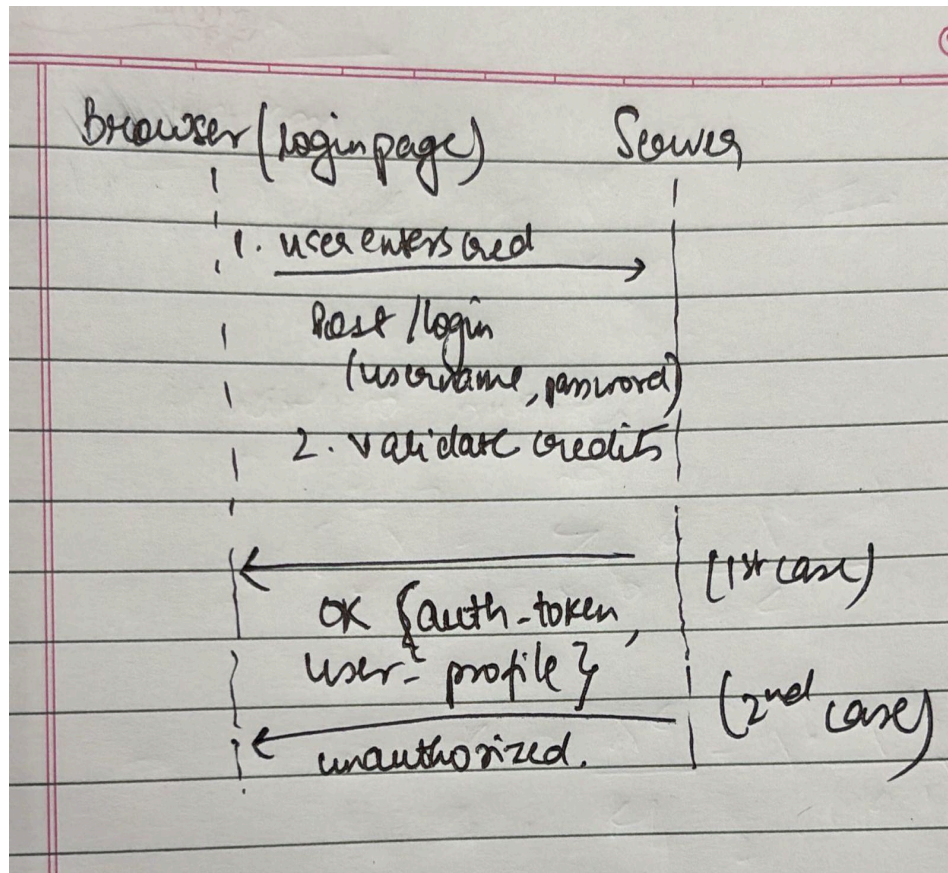 Browser (login page) Server
1. user enters cred
Post /login
(username, password)
2. validate credits
(1st case)
OK {auth-token,
user-profile}
(2nd case)
unauthorized.